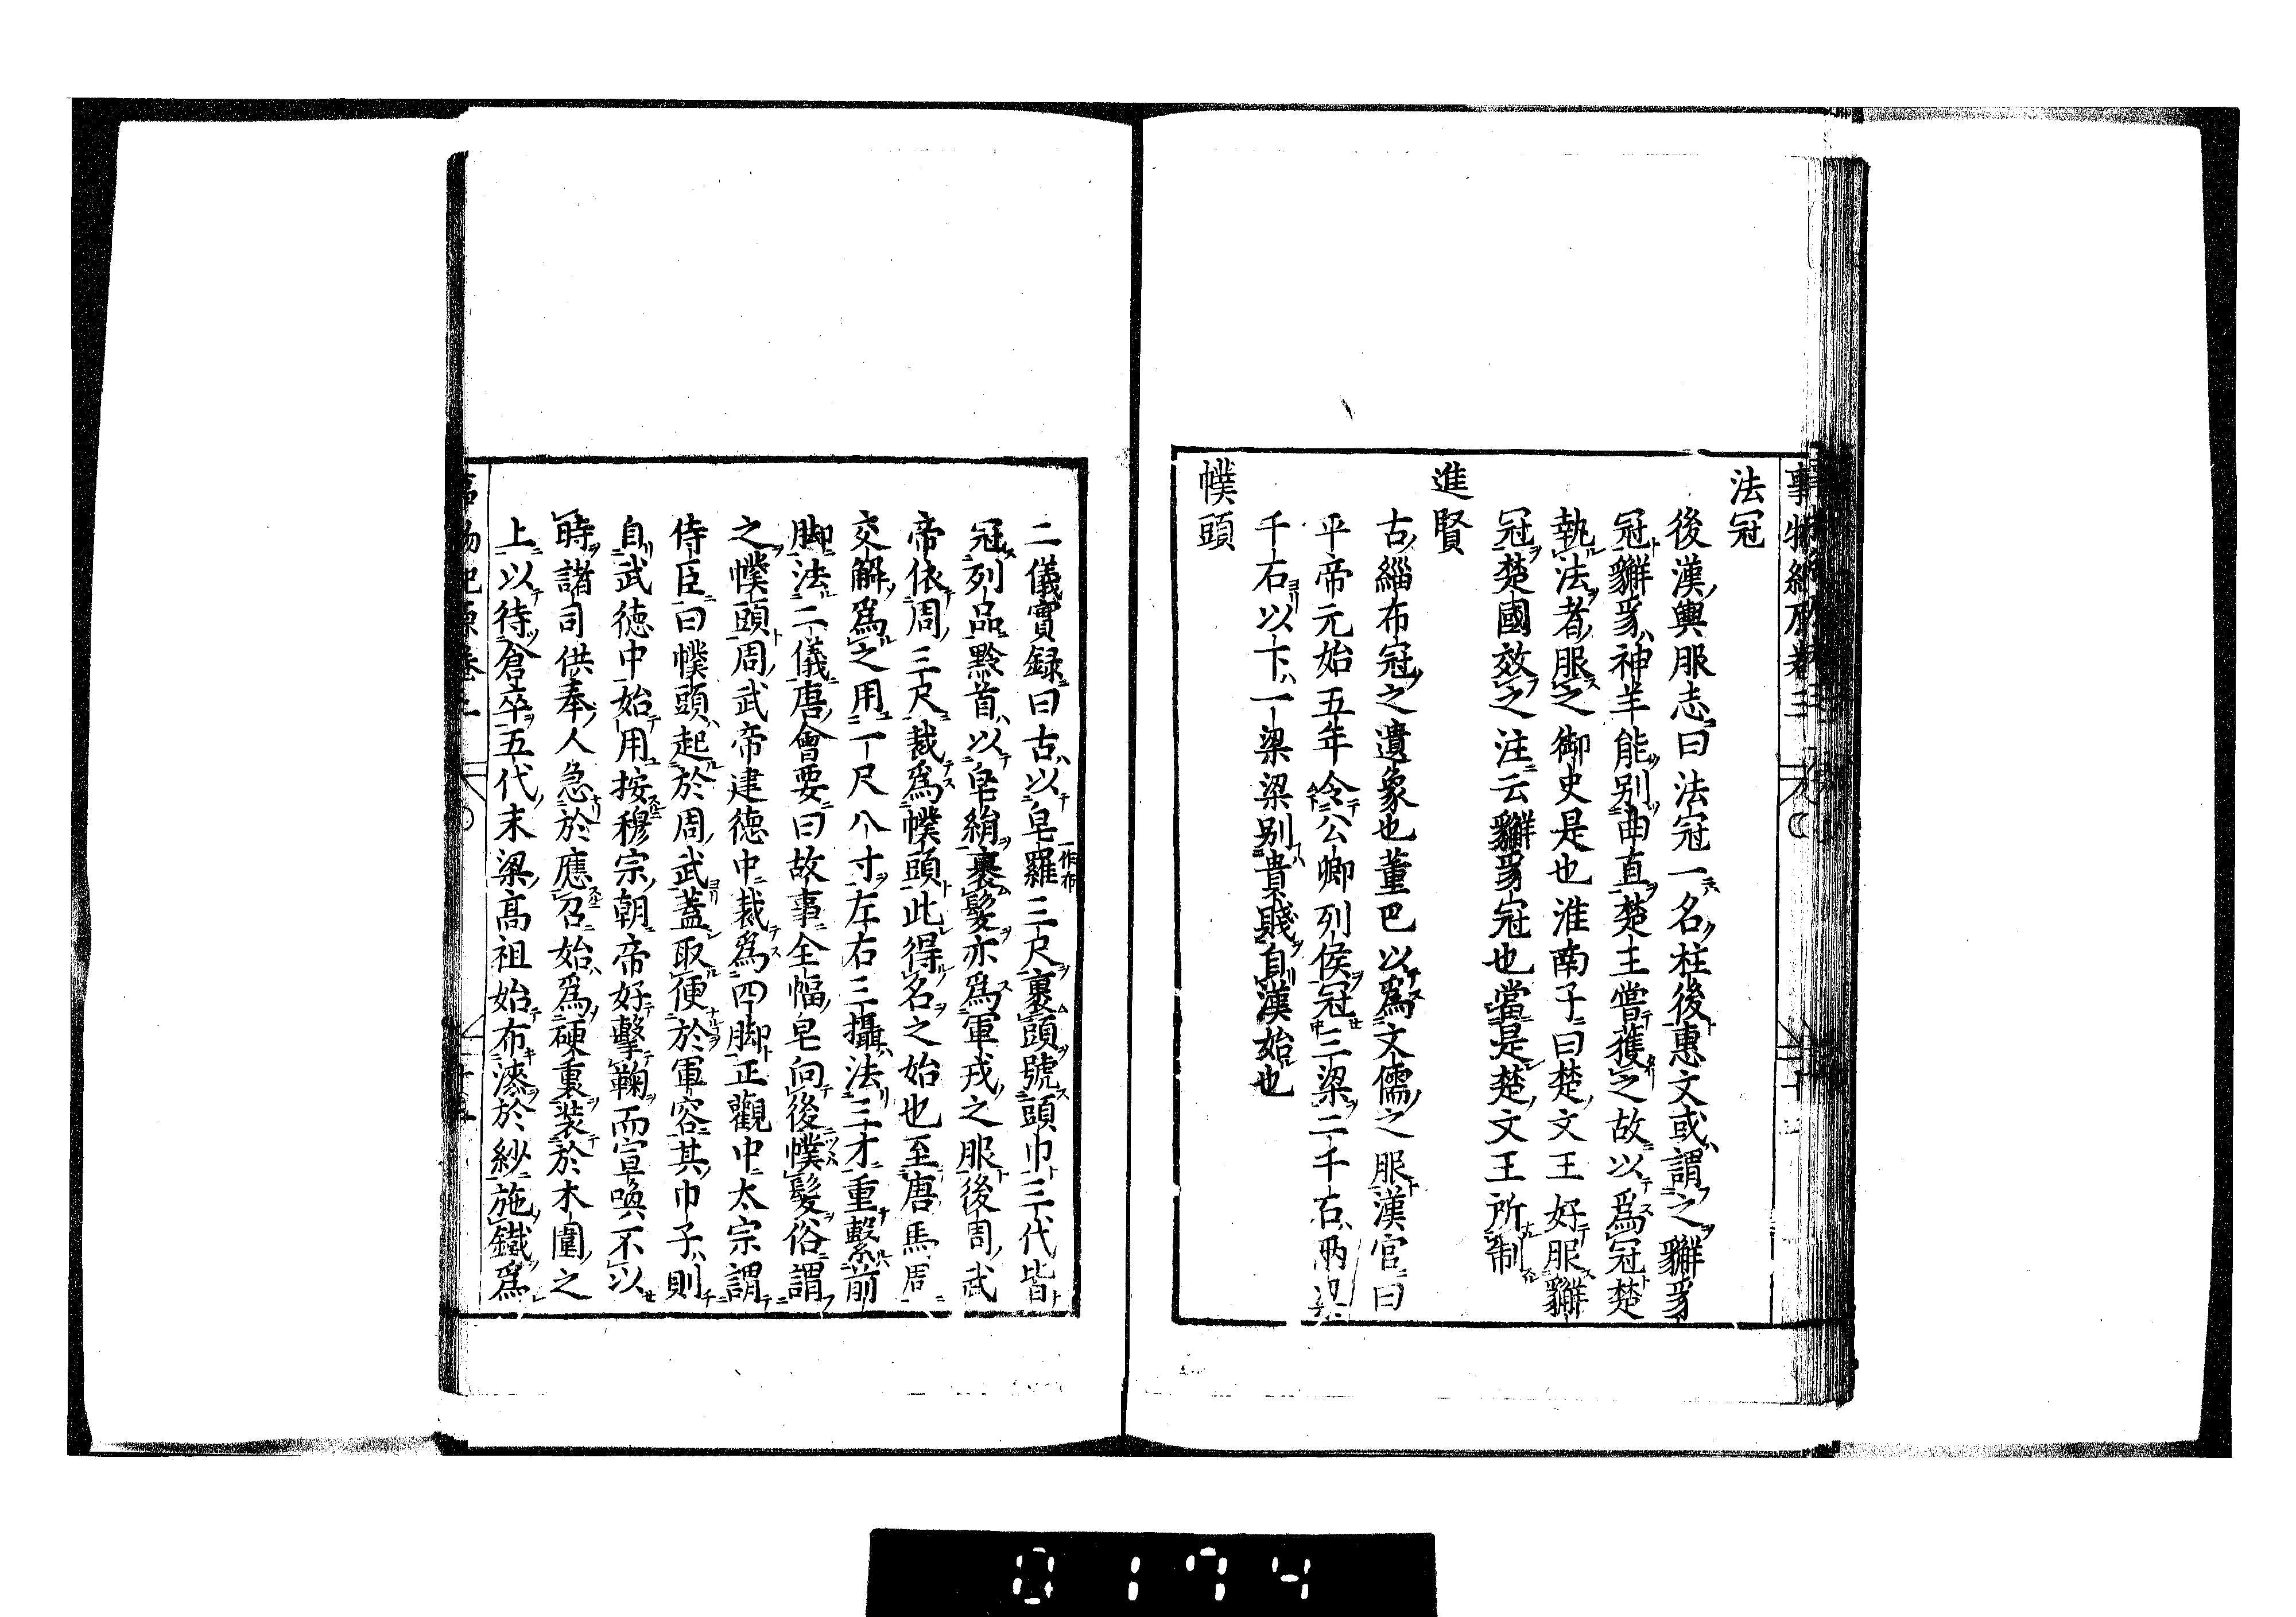 法冠
後漢輿服志曰法冠一名柱後惠文或謂之獬豸
冠獬豸神羊能别曲直楚王嘗獲之故以爲冠楚
執法者服之御史是也淮南子曰楚文王好服獬
冠楚國效之注云獬豸冠也當是楚文王所制
進賢
古緇布冠之遺象也董巴以爲文儒之服漢官曰
平帝元始五年令公卿列侯冠三梁二千石兩梁
千石以下一梁梁别貴賤自漢始也
幞頭
二儀實録曰古以皂羅一作布三尺裹頭號頭巾三代皆
冠列品黔首以皂絹裹髮亦爲軍戎之服後周武
帝依周三尺裁爲幞頭此得名之始也至唐馬周
交解爲之用一尺八寸左右三攝法三才重繫前
脚法二儀唐會要曰故事全幅皂向後幞髮俗謂
之幞頭周武帝建德中裁爲四脚正觀中太宗謂
侍臣曰幞頭起於周武蓋取便於軍容其巾子則
自武德中始用按穆宗朝帝好擊鞠而宣喚不以
時諸司供奉人急於應召始爲硬裏装於木圍之
上以待倉卒五代末梁高祖始布漆於紗施鐵爲
0174